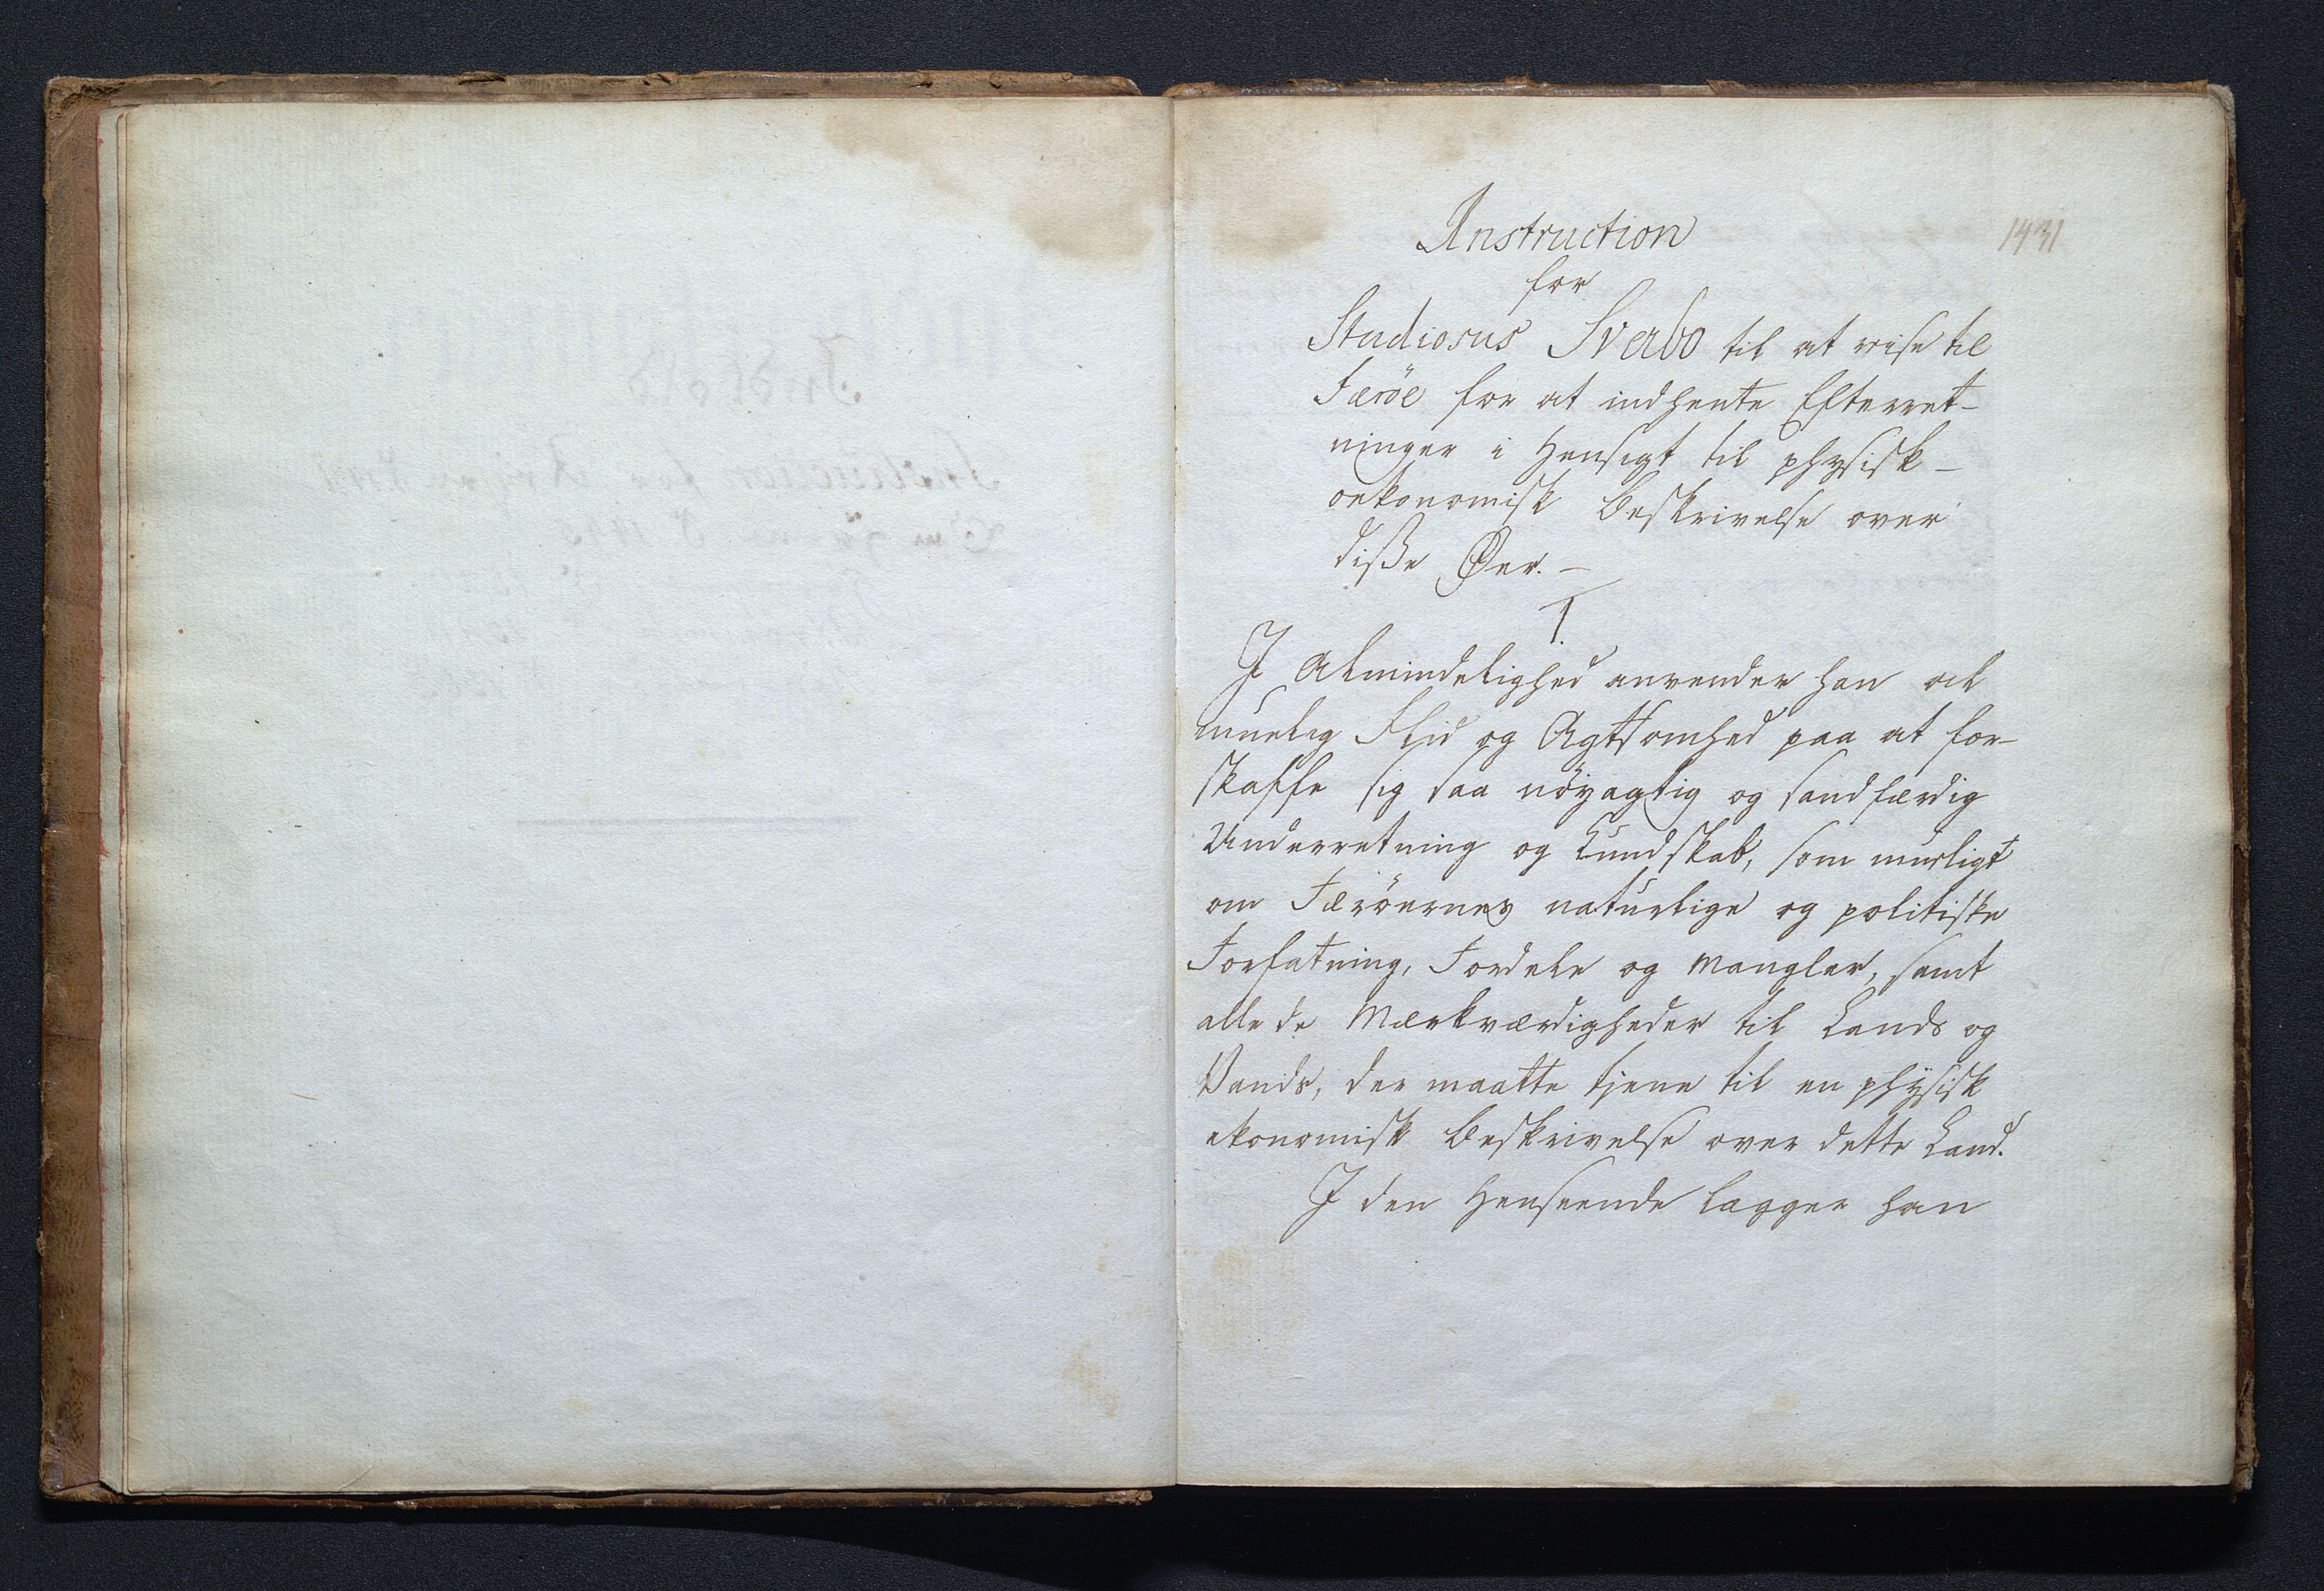 Instruction
1431
for
Studiosus Svabo til at reise til
Færöe for at indhente Efterret-
ninger i Hensigt til physisk-
oekonomisk Beskrivelse over
disse Øer. —
1.
I Almindelighed anvender han al
muelig Flid og Agtsomhed paa at for-
skaffe sig saa nöyagtig og sandfærdig
Underretning og Kundskab, som mueligt
om Færöernes naturlige og politiske
Forfatning, Fordele og Mangler, samt
alle de Mærkværdigheder til Lands og
Vands, der maatte tjene til en physisk
ekonomisk Beskrivelse over dette Land.
I den Henseende lægger han